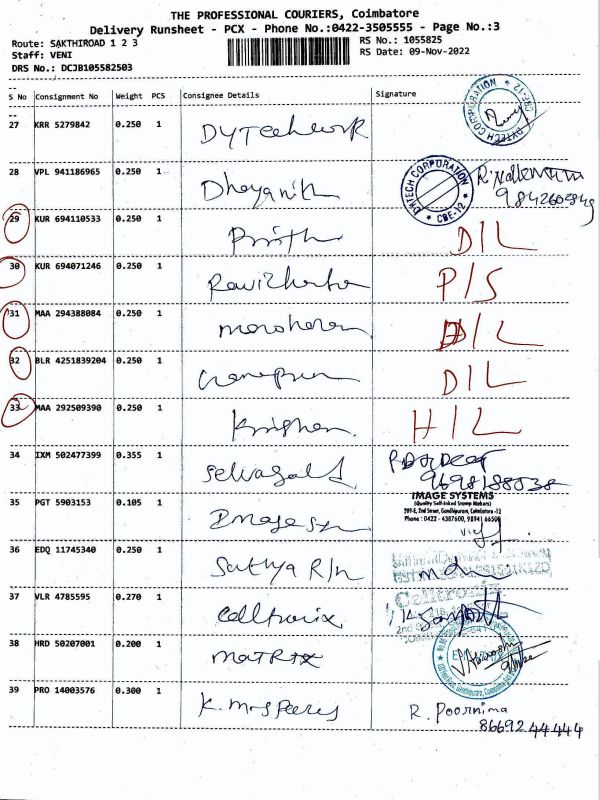 THE PROFESSIONAL COURIERS, Coimbatore
Delivery Runsheet - PCX - Phone No.:0422-3505555 - Page No.:3
Route: SAKTHIROAD 1 2 3
Staff: VENI
DRS No.: DCJB105582503
RS No.: 1055825
RS Date: 09-Nov-2022
S No Consignment No Weight PCS Consignee Details Signature
27 KRR 5279842 0.250 1 DYTechwork
DYTECH CORPORATION * CBE-12 *
28 VPL 941186965 0.250 1 Dhayanith
DYTECH CORPORATION * CBE-12 *
29 KUR 694110533 0.250 1 D/L
30 KUR 694071246 0.250 1 P/S
31 MAA 294388084 0.250 1 manoharan D/L
32 BLR 4251839204 0.250 1 D/L
33 MAA 292509390 0.250 1 Krishnan H/L
34 IXM 502477399 0.355 1 Selvagold
9698188538
35 PGT 5903153 0.105 1
IMAGE SYSTEMS
(Quality Self-Inked Stamp Makers)
299-E, 2nd Street, Gandhipuram, Coimbatore-12
Phone : 0422 - 4387600, 98941 66500
36 EDQ 11745340 0.250 1 Sathya R/n
37 VLR 4785595 0.270 1 Celltronix
Celltronix
38 HRD 50207001 0.200 1 MATRIX
39 PRO 14003576 0.300 1
R. Poornima
86692 44444